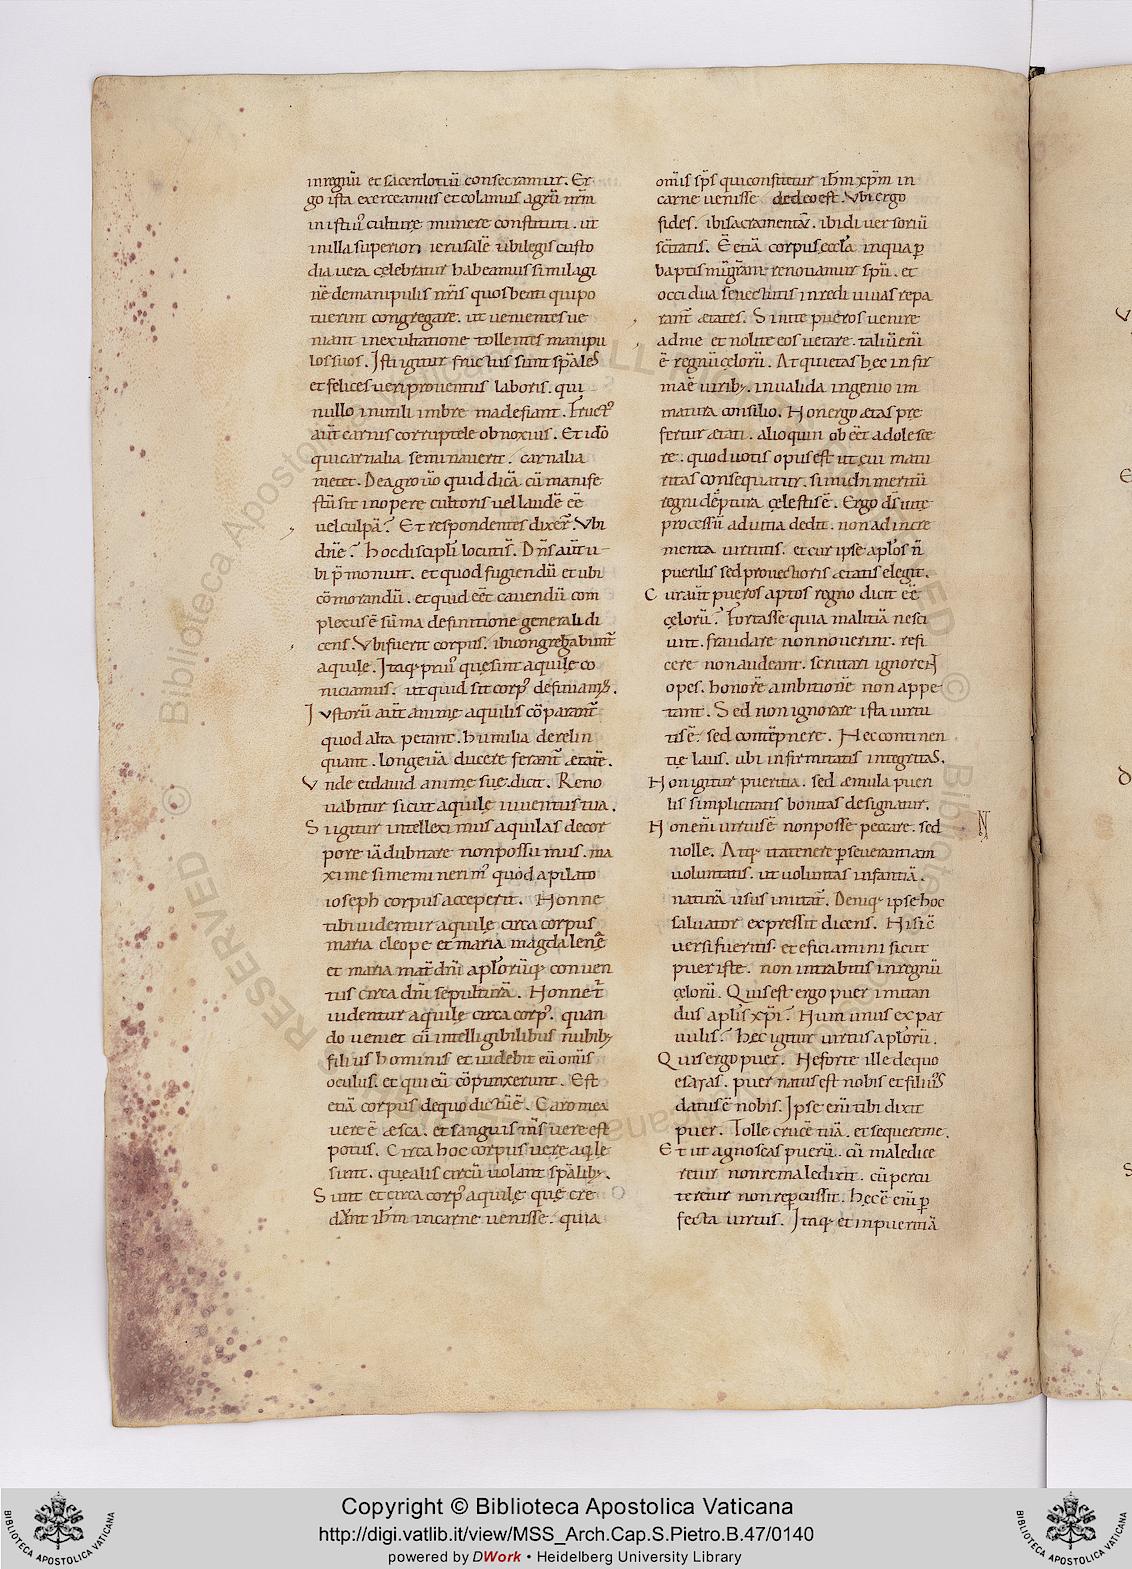 in regnū et sacerdotiū consecramur. Er
go ista exerceamus et colamus agrū nr̄m
in istiꝰ culturę munere constituti. ut
in illa superiori ierusalē ubi legis custo
dia uera celebratur habeamus similagi
nē de manipulis nr̄is quos beati qui po
tuerint congregare. ut uenientes ue
niant in exultatione tollentes manipu
los suos. Isti igitur fructus sunt sp̄ales
et felices ueri prouentus laboris. qui
nullo inutili imbre madefiant. Fructꝰ
aut̄ carnis corruptele obnoxius. Et idō
qui carnalia seminauerit. carnalia
metet. De agro u̅o quid dicā. cū manife
stū sit in opere cultoris uel laudē eē
uel culpā? Et respondentes dixer̄. Vbi
dn̄e? hoc discipl̄i locuti s̄. Dn̄s aut̄ u
bi p̄monuit. et quod fugiendū et ubi
cōmorandū. et quid eēt cauendū com
plexus ē sūma definitione generali di
cens. Vbi fuerit corpus. ibi congregabunt̄
aquilę. Itaq; priuſ quę sint aquilę co
niciamus. ut quid sit corpꝰ definiamꝰ.
Iustorū aut̄ animę aquilis cōparant̄
quod alta petant. humilia derelin
quant. longeuā ducere ferant̄ ætatē.
Vnde et dauid animę suę dicit. Reno
uabitur sicut aquilę iuuentus tua.
Si igitur intelleximus aquilas decor
pore iā dubitare non possumus. ma
xime si meminerimꝰ quod a pilato
ioseph corpus acceperit. Nonne
tibi uidentur aquilę circa corpus
maria cleope et maria magdalenē
et maria mat̄ dn̄i apl̄orūq; conuen
tus circa dn̄i sepulturā. Nonne t̄
uidentur aquilę circa corpꝰ. quan
do ueniet cū intelligibilibus nubib;
filius hominis et uidebit eū om̄is
oculus. et qui eū cōpunxerunt. Est
etiā corpus de quo dictū ē. Caro mea
uere ē æsca. et sanguis m̄s uere est
potus. Circa hoc corpus uerę aq̄lę
sunt. quę alis circū uolant sp̄alib;.
Sunt et circa corpꝰ aquilę quę cre
dunt ih̄m in carne uenisse. quia
om̄is sp̄s qui constitetur ih̄m xp̄m in
carne uenisse de deo est. Vbi ergo
fides. ibi sacramentū. ibi diuersoriū
sc̄itatis. Ē etiā corpus ęccl̄a in qua ꝑ
baptismi gr̄am renouamur spū. et
occidua senectutis in rediuiuas repa
rant̄ ætates. Sinite pueros uenire
ad me et nolite eos uetare. taliū eni
ē regnū cęlorū. At qui ętas hęc infir
ma ē uirib;. inualida ingenio im
matura consilio. Non ergo ætas pre
fertur ætati. alioquin obeēt adolesce
re. quod uotis opus est ut cui matu
ritas consequatur. si michi meritū
regni dēptura cęlestis ē. Ergo dī s uite
processū ad uitia dedit. non ad incre
menta uirtutis. et cur ipse apl̄os n̄
puerilis sed prouectioris ætatis elegit.
Cur aut̄ pueros aptos regno dicit eē
cęlorū? Fortasse quia malitiā nesci
unt. fraudare non nouerint. refi
cere non audeant. scrutari ignorent
opes. honorē ambitionē non appe
tant. Sed non ignorare ista uirtu
tis ē. sed contēpnere. Nec continen
tię laus. ubi infirmitatis integritas.
Non igitur pueritia. sed æmula pueri
lis simplicitatis bonitas designatur.
Non eni uirtus ē non posse peccare. sed
nolle. Atq; ita tenere ꝑseuerantiam
uoluntatis. ut uoluntas infantiā.
naturā usus imitat̄. Deniq; ipse hoc
saluator expressit dicens. Nisi c̄
uersi fueritis. et eficiamini sicut
puer iste. non intrabitis in regnū
cęlorū. Quis est ergo puer imitan
dus apl̄is xp̄i? Num unus ex par
uulis? hęc igitur uirtus apl̄orū.
Quis ergo puer. Ne forte ille de quo
esaias. puer natus est nobis et filius
datus ē nobis. Ipse eni tibi dixit
puer. Tolle crucē tuā. et sequere me.
Et ut agnoscas puerū. cū maledice
retur non remaledixit. cū percu
teretur non reꝑcussit. hęc ē eni ꝑ
fecta uirtus. Itaq; et in pueritiā
N
Copyright © Biblioteca Apostolica Vaticana
http://digi.vatlib.it/view/MSS_Arch.Cap.S.Pietro.B.47/0140
powered by DWork • Heidelberg University Library
BIBLIOTECA APOSTOLICA VATICANA
BIBLIOTECA APOSTOLICA VATICANA